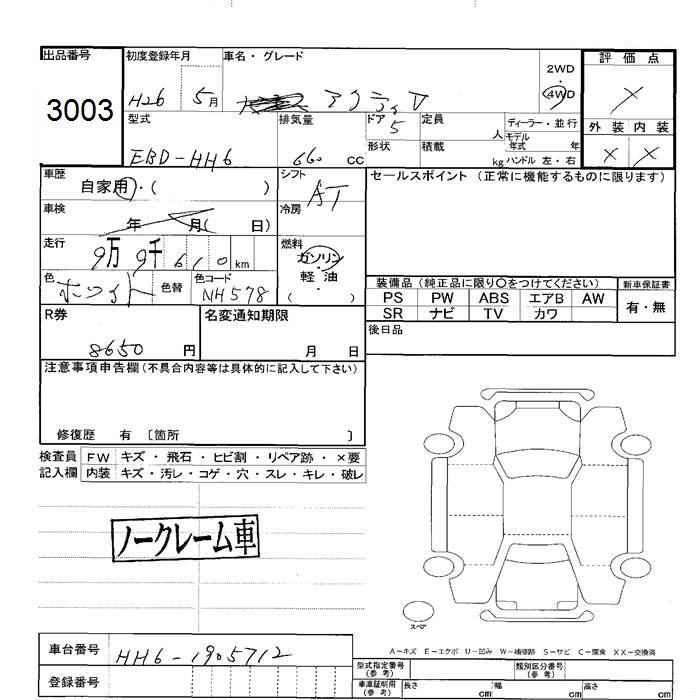 出品番号 初度登録年月 車名・グレード 2WD 評価点
3003 H26 5月 アクティ V 4WD ×
型式 排気量 ドア 5 定員 人 ディーラー・並行 外装 内装
EBD-HH6 660 cc 形状 積載 kg モデル年式 年 ハンドル 左・右 × ×
車歴 自家用・( ) シフト AT セールスポイント (正常に機能するものに限ります)
車検 年 月( 日) 冷房
走行 9万 9千 610 km 燃料 ガソリン・軽油 ( )
色 ホワイト 色替 色コード NH578 装備品(純正品に限り○をつけてください) 新車保証書
PS PW ABS エアB AW 有・無
SR ナビ TV カワ
R券 8650 円 名変通知期限 月 日 後日品
注意事項申告欄(不具合内容等は具体的に記入して下さい)
修復歴 有 〔箇所 〕
検査員 FW キズ・飛石・ヒビ割・リペア跡・×要
記入欄 内装 キズ・汚レ・コゲ・穴・スレ・キレ・破レ
ノークレーム車
スペア
A−キズ E−エクボ U−凹み W−補修跡 S−サビ C−腐食 XX−交換済
車台番号 HH6-1905712
型式指定番号(参考) 類別区分番号(参考)
登録番号 車庫証明用(参考) 長さ cm 幅 cm 高さ cm